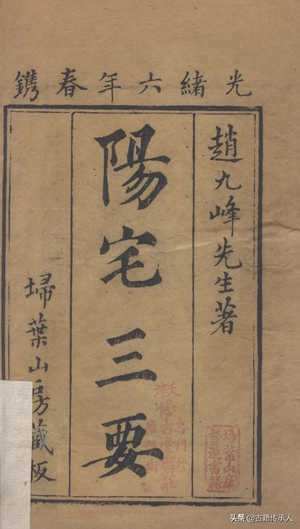 光緒六年春鐫
趙九峰先生著
陽宅三要
埽葉山房藏板
頭條 @古籍传承人